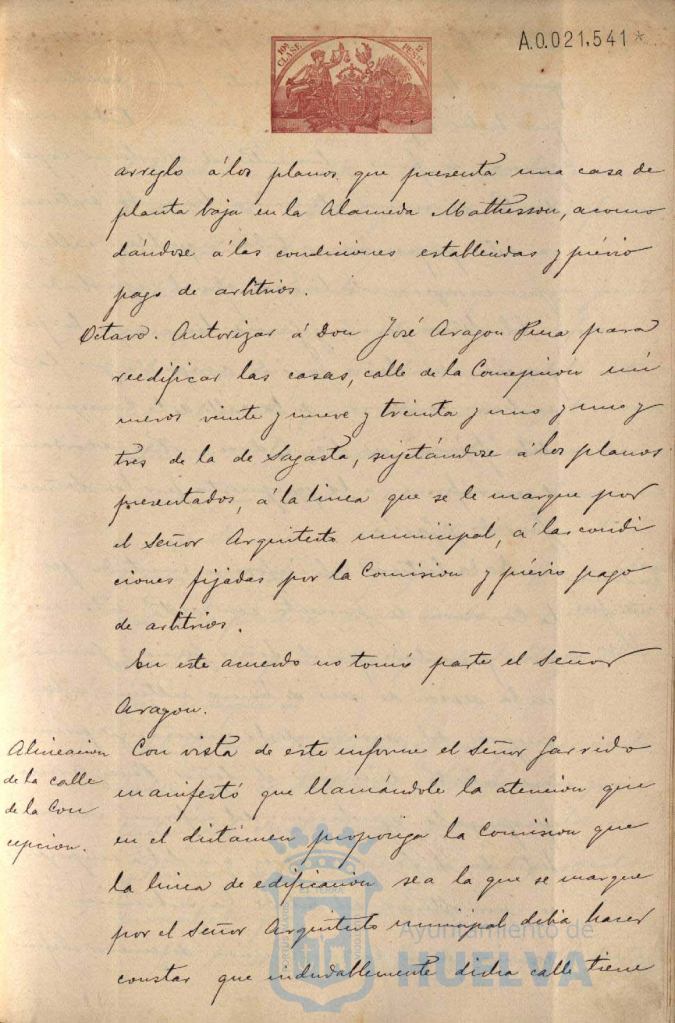 10ª CLASE
2 PESETAS
A.0.021,541*
arreglo á los planos que presenta una casa de
planta baja en la Alameda Mathesson, acomo
dándose á las condiciones establecidas y prévio
pago de arbitrios.
Octavo. Autorizar á Don José Aragon para
reedificar las casas, calle de la Concepcion nú
meros veinte y nueve y treinta y uno y uno y
tres de la de Sagasta, sujetándose á los planos
presentados, á la linea que se le marque por
el Señor Arquitecto municipal, á las condi
ciones fijadas por la Comision y prévio pago
de arbitrios.
En este acuerdo no tomó parte el Señor
Aragon.
Alineacion
de la calle
de la Con
cepcion.
Con vista de este informe el Señor Garrido
manifestó que llamándole la atencion que
en el dictámen proponga la Comision que
la linea de edificacion sea la que se marque
por el Señor Arquitecto municipal debia hacer
constar que indudablemente dicha calle tiene
Ayuntamiento de
HUELVA